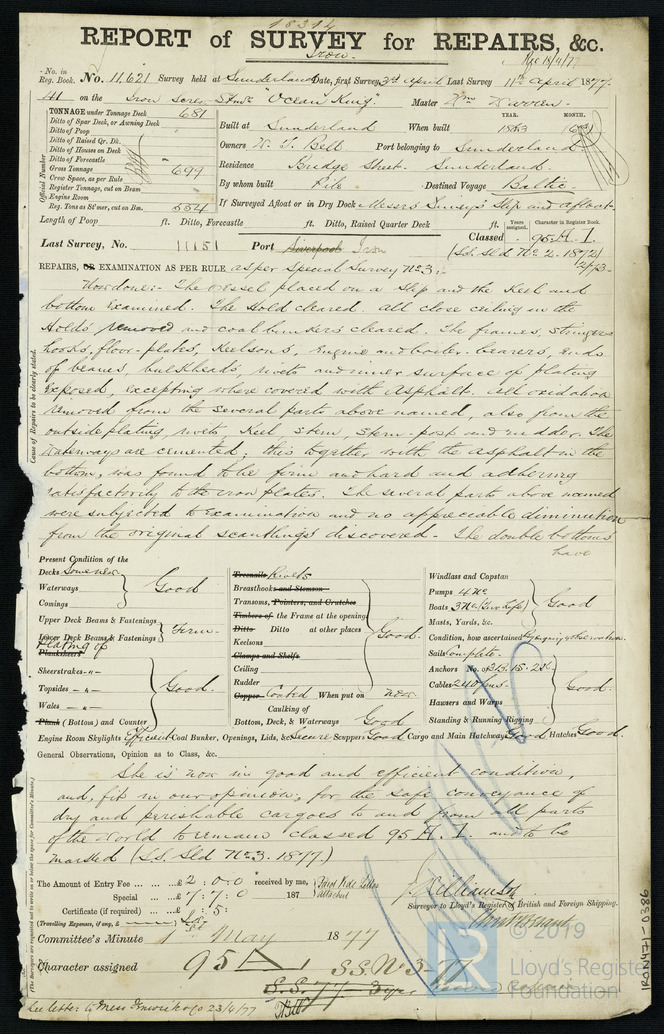 18314
REPORT of SURVEY for REPAIRS, &c.
Iron.
Rec 18/4/77
No. in Reg. Book. No. 11,621 Survey held at Sunderland Date, first Survey 3rd April Last Survey 11th April 1877
411 on the Iron Screw Stmr "Ocean King" Master Wm
TONNAGE under Tonnage Deck 681
Ditto of Spar, or Awning Deck
Ditto of Poop
Ditto of Raised Qr. Dk.
Ditto of Houses on Deck
Ditto of Forecastle
Gross Tonnage 699
Crew Space, as per Rule
Register Tonnage, cut on Beam
Engine Room
Reg. Tons as St'mer, cut on Bm. 554
Official Number
YEAR. MONTH.
Built at Sunderland When built 1863
Owners W. T. Bell Port belonging to Sunderland
Residence Bridge Street. Sunderland
By whom built Pile Destined Voyage Baltic
If Surveyed Afloat or in Dry Dock Messrs Slip and afloat
Length of Poop ft. Ditto, Forecastle ft. Ditto, Raised Quarter Deck ft.
Years assigned. Character in Register Book.
Last Survey, No. 11151 Port Liverpool Iron Classed 95 A. 1.
(S.S. Sld No. 2. 1872)
2/73
REPAIRS, OR EXAMINATION AS PER RULE as per Special Survey No 3:-
Now done:- The vessel placed on a Slip and the Keel and
bottom Examined. The Hold cleared. All close ceiling in the
Holds removed and coal bunkers cleared. The frames, Stringers
hooks, floor-plates, Keelsons, Engine and boiler bearers, Ends
of beams, bulkheads, rivets and inner surface of plating
Exposed, excepting where covered with Asphalt. all oxidation
removed from the several parts above named, also from the
outside plating, rivets, Keel, Stem, Stern post and rudder. The
Waterways are cemented; this together with the asphalt in the
bottom, was found to be firm and hard and adhering
satisfactorily to the iron plates. The several parts above named
were subjected to Examination and no appreciable diminution
from the original scantlings discovered. The double bottoms
have
Cause of Repairs to be clearly stated.
Present Condition of the
Decks Some new
Waterways Good
Comings
Upper Deck Beams & Fastenings
Lower Deck Beams & Fastenings Firm
Plating of
Planksheers
Sheerstrakes
Topsides Good.
Wales
Plank (Bottom) and Counter
Treenails Rivets
Breasthooks and Stemson
Transoms, Pointers, and Crutches
Timbers of the Frame at the openings
Ditto Ditto at other places Good.
Keelsons
Clamps and Shelfs
Ceiling
Rudder
Copper Coated When put on now
Caulking of
Bottom, Deck, & Waterways Good
Windlass and Capstan
Pumps 4 No
Boats 3 No (Two Life) Good
Masts, Yards, &c.
Condition, how ascertained
Sails Complete.
Anchors No. of 3 B. 1 S. 2 K
Cables 240 fms. Good.
Hawsers and Warps
Standing & Running Rigging
Engine Room Skylights Efficient Coal Bunker, Openings, Lids, &c. Secure Scuppers Good Cargo and Main Hatchways Good Hatches Good.
General Observations, Opinion as to Class, &c.
She is now in good and efficient condition,
and, fit in our opinion, for the safe conveyance of
dry and perishable cargoes to and from all parts
of the World to remain Classed 95 A. 1. and to be
marked (S.S. Sld No. 3. 1877.)
The Amount of Entry Fee ... £ 2 : 0 : 0 received by me,
Special ... £ 7 : 7 : 0 187
Certificate (if required) ... : 5 :
(Travelling Expenses, if any, £
attached
Surveyor to Lloyd's Register of British and Foreign Shipping.
Committee's Minute 1st May 1877
Character assigned 95 A 1 S.S. No 3-77
S.S. 77-3 yrs
See letter to Messrs 23/4/77
IRON471-0386
© 2019
Lloyd's Register
Foundation